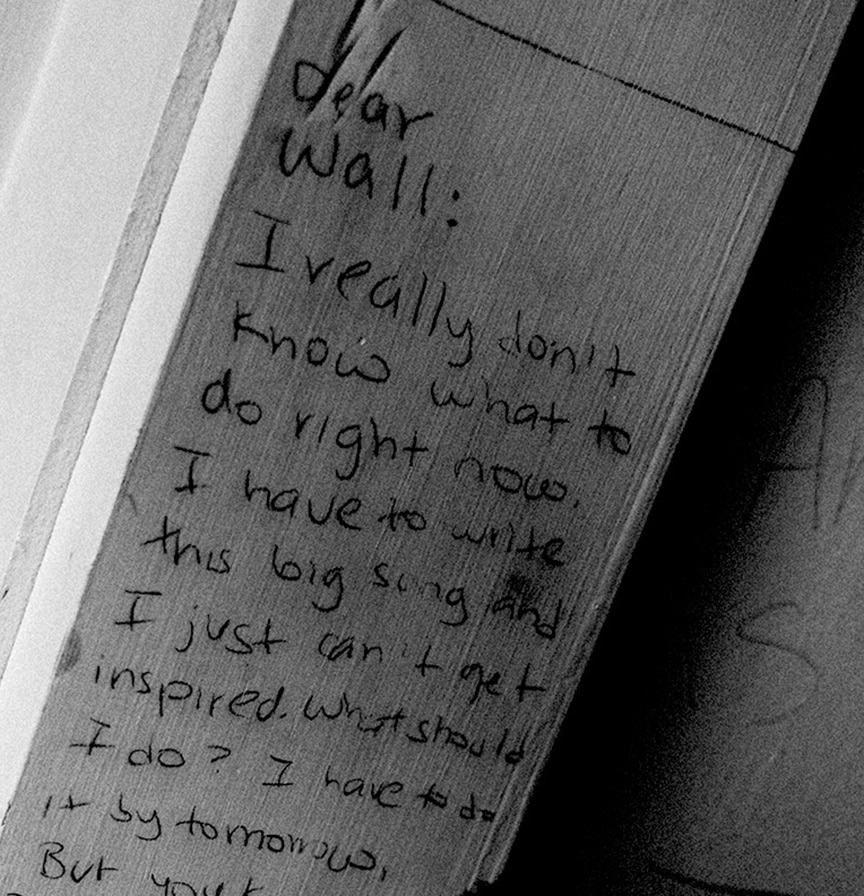 Dear
Wall:
I really don't
know what to
do right now.
I have to write
this big song and
I just can't get
inspired. What should
I do? I have to do
it by tomorrow,
But
A
IS